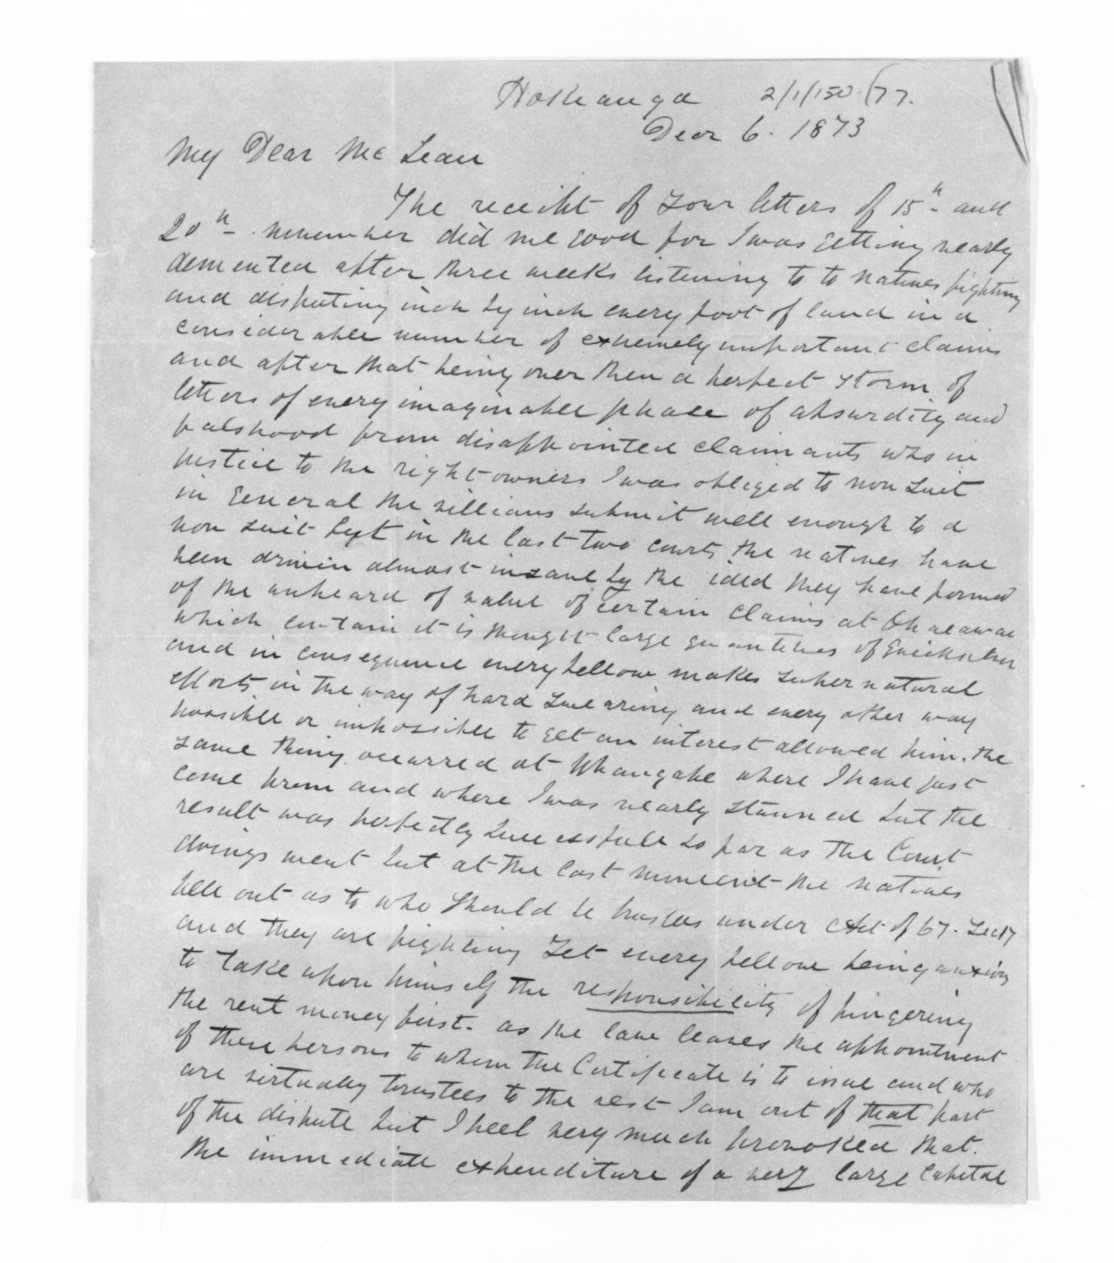 Hokianga 2/1/150 (77.
Decr 6. 1873
My Dear McLean
The receipt of your letters of 15th and
20th november did me good for I was getting nearly
demented after three weeks listening to to natives fighting
and disputing inch by inch every foot of land in a
considerable number of extremely important claims
and after that being over then a perfect storm of
letters of every imaginable phase of absurdity and
falshood from disappointed claimants who in
justice to the right owners I was obliged to non suit
in general the villians submit well enough to a
non suit but in the last two courts the natives have
been driven almost insane by the idea they have formed
of the unheard of value of certain claims at Ohaeawai
which contain it is thought large quantities of Quicksilver
and in consequence every fellow makes supernatural
efforts in the way of hard swearing and every other way
possible or impossible to get an interest allowed him. the
same thing occurred at Whangape where I have just
come from and where I was nearly stunned but the
result was perfectly successfull so far as the Court
doings went but at the last moment the natives
fell out as to who should be trustees under Act of 67. Sec 17
and they are fighting yet every fellow being anxious
to take upon himself the responsibility of fingering
the rent money first. as the law leaves the appointment
of these persons to whom the Certificate is to issue and who
are virtually trustees to the rest I am out of that part
of the dispute but I feel very much provoked that.
the immediate expenditure of a very large Capital